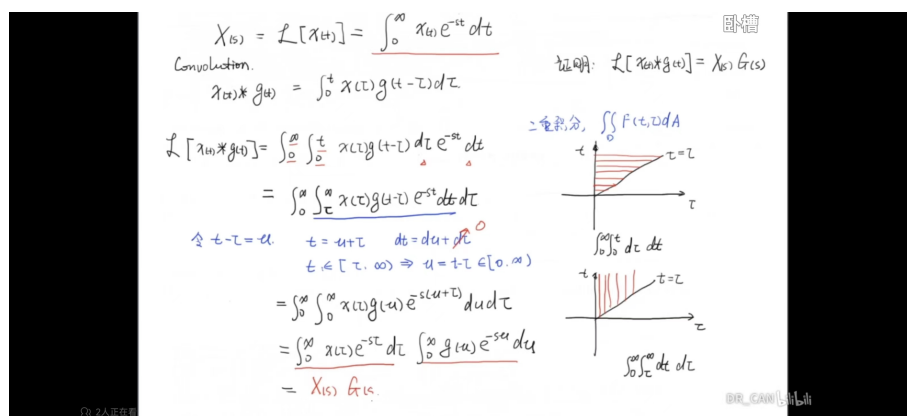 卧槽
X(s) = ℒ[x(t)] = ∫₀^∞ x(t) e^{-st} dt
Convolution.
x(t) * g(t) = ∫₀^t x(τ) g(t-τ) dτ.
证明: ℒ[x(t)*g(t)] = X(s) G(s)
ℒ[x(t)*g(t)] = ∫₀^∞ ∫₀^t x(τ) g(t-τ) dτ e^{-st} dt
= ∫₀^∞ ∫_τ^∞ x(τ) g(t-τ) e^{-st} dt dτ
令 t-τ = u. t = u+τ dt = du + dτ 0
t ∈ [τ, ∞) ⇒ u = t-τ ∈ [0, ∞)
= ∫₀^∞ ∫₀^∞ x(τ) g(u) e^{-s(u+τ)} du dτ
= ∫₀^∞ x(τ) e^{-sτ} dτ ∫₀^∞ g(u) e^{-su} du
= X(s) G(s)
二重积分, ∬_D F(t,τ) dA
t
τ=t
τ
∫₀^∞ ∫₀^t dτ dt
t
t=τ
τ
∫₀^∞ ∫_τ^∞ dt dτ
DR_CAN bilibili
2人正在看